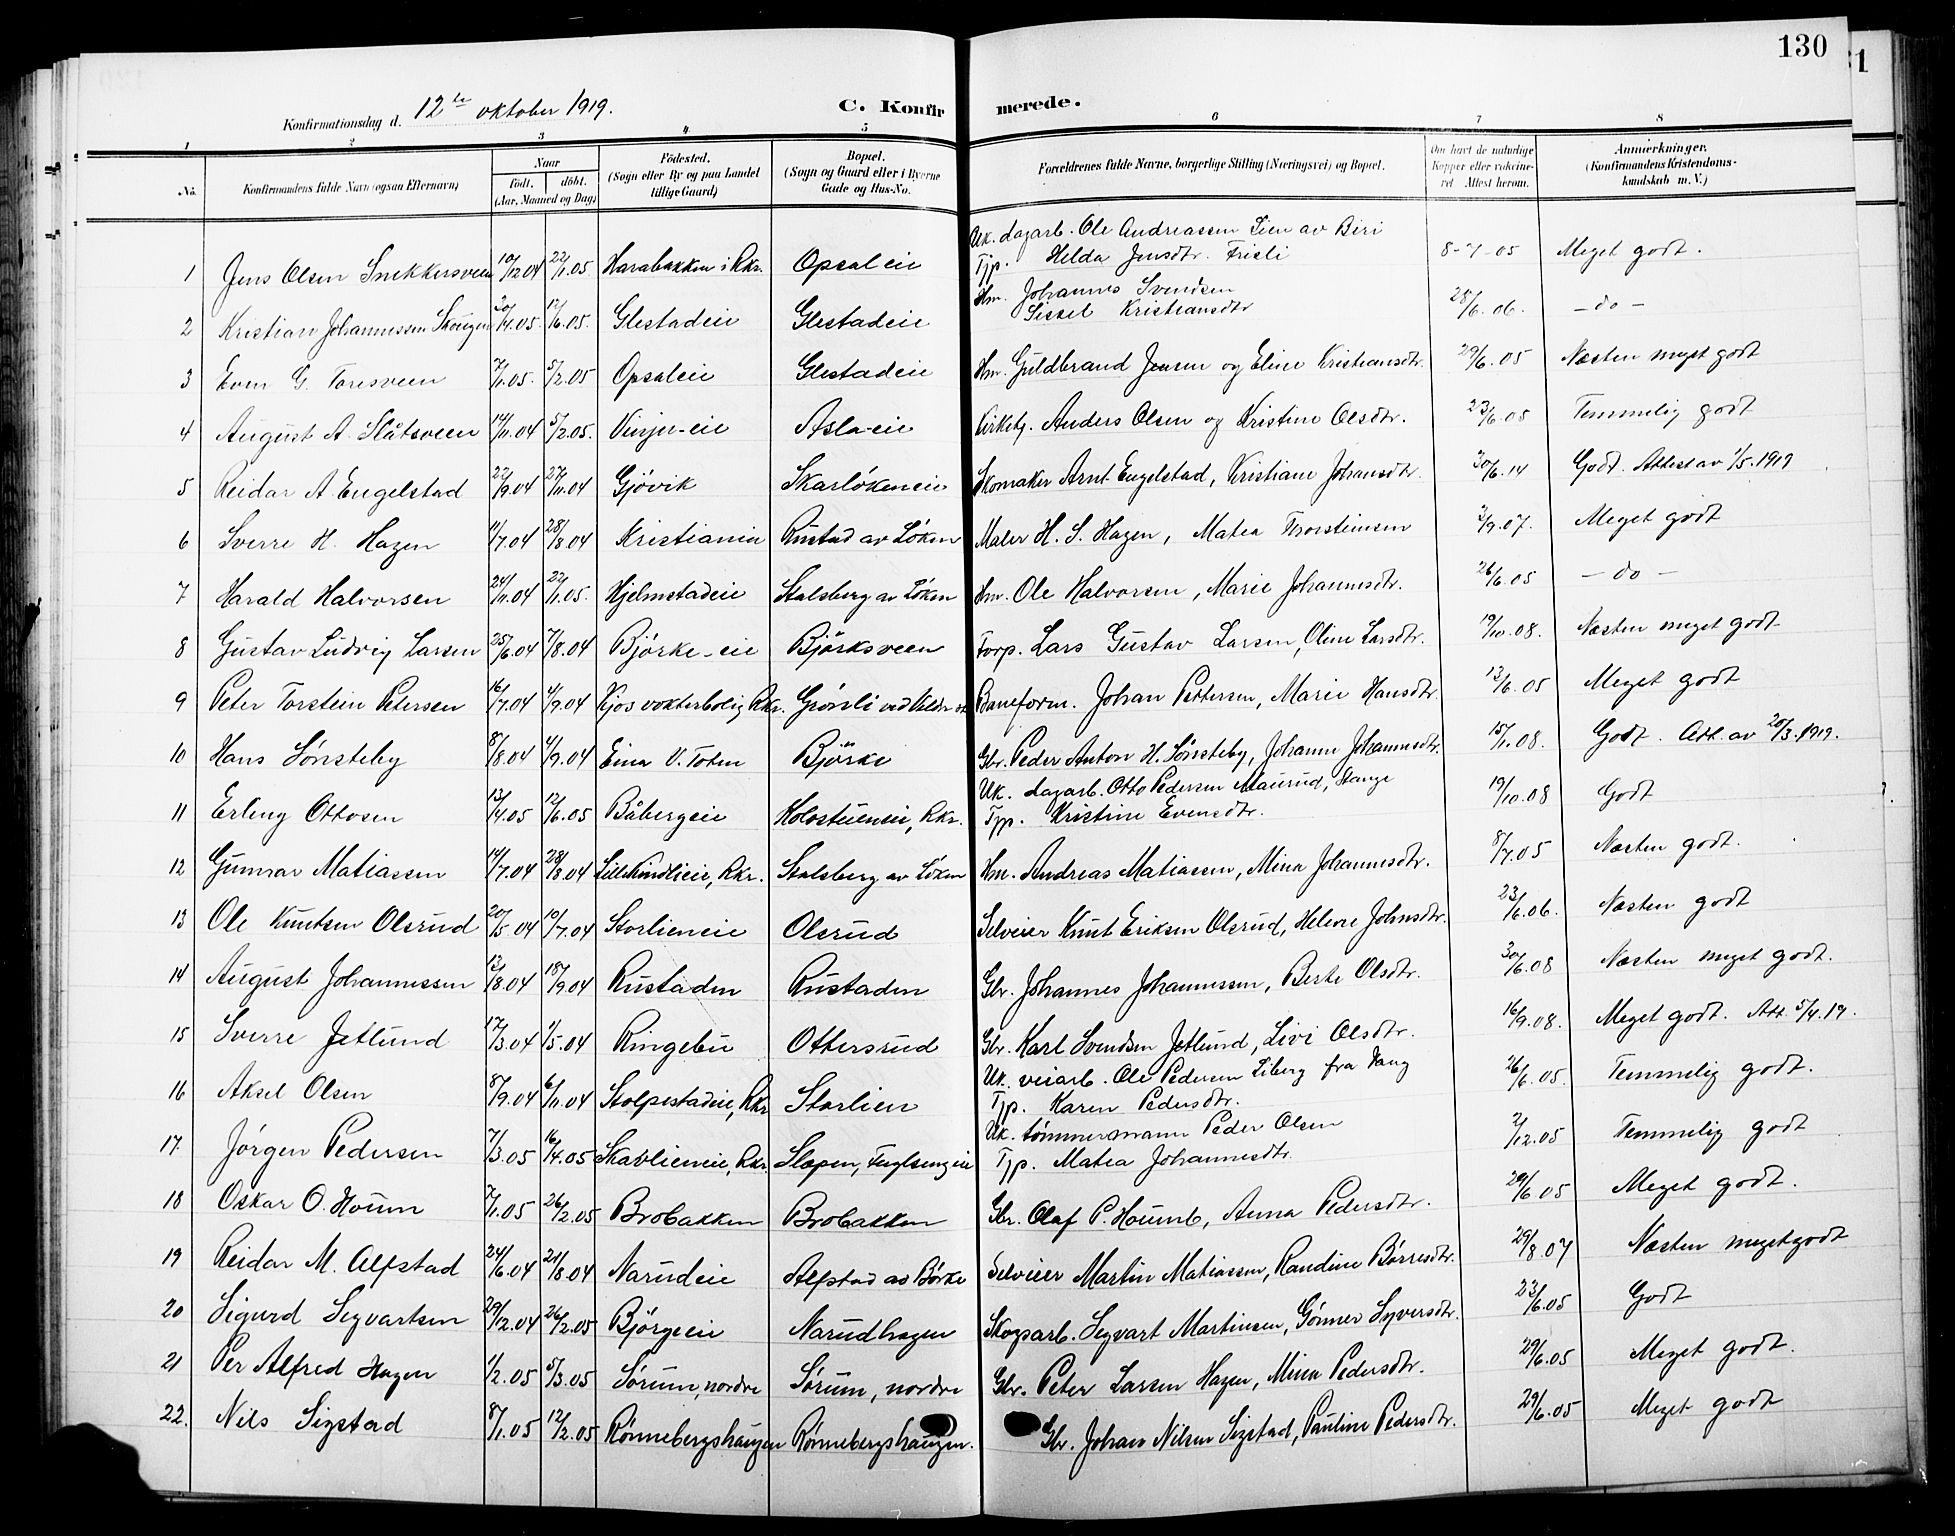 130
Konfirmationsdag d. 12te oktober 1919. C. Konfirmerede.
1 2 3 4 5 6 7 8
No. Konfirmandens fulde Navn (ogsaa Efternavn) Naar Födt. döbt. (Aar, Maaned og Dag) Födested. (Sogn eller By og paa Landet tillige Gaard) Bopæl. (Sogn og Gaard eller i Byerne Gade og Hus-No. Forældrenes fulde Navne, borgerlige Stilling (Næringsvei) og Bopæl. Om havt de naturlige Kopper eller vakcineret Attest herom. Anmerkninger. (Konfirmandens Kristendomskundskab m. V.)
1 Jens Olsen Snekkersveen 10/12 04 22/1.05. Harabakken i Rkr. Opsaleie Uk. dagarb. Ole Andreassen Lien av Biri
Tjp. Helda Jensdtr. Frisli 8-7-05 Meget godt.
2 Kristian Johannessen Skougen 20/4.05. 12/6.05. Glestadeie Glestadeie Hm. Johannes Svendsen
Sissel Kristiansdtr 28/6.06. - do -
3 Even G. Toresveen 7/1.05. 5/2.05 Opsaleie Glestadeie Hm. Guldbrand Jensen og Eline Kristiansdtr. 29/6.05 Næsten meget godt
4 August A. Slåtsveen 14/11.04 5/2.05. Vinju-eie Asla-eie Kirketj. Anders Olsen og Kristine Olsdtr. 23/6.05 Temmelig godt
5 Reidar A. Engelstad 22/9.04 27/11.04 Gjövik Skarlökeneie Skomaker Arnt Engelstad, Kristiane Johansdtr. 30/6.14 Godt. Attest av 1/5.1919
6 Sverre H. Hagen 11/7.04 28/8.04 Kristiania Rustad av Løken Maler H. S. Hagen, Matea Thorsteinsen 3/9.07. Meget godt
7 Harald Halvorsen 24/11.04 22/1.05. Hjelmstadeie Stalsberg av Løken Hm. Ole Halvorsen, Marie Johannesdtr. 26/6.05 - do -
8 Gustav Ludvig Larsen 25/6.04 7/8.04 Bjørke-eie Björksveen Torp. Lars Gustav Larsen, Oline Larsdtr. 19/10.08. Næsten meget godt
9 Peter Torstein Petersen 16/7.04 4/9.04 Kjos vokterbolig Rkr. Grönli ved Veldre st Baneform. Johan Pettersen, Marie Hansdtr. 13/6.05 Meget godt
10 Hans Sönsteby 8/8.04 4/9.04 Eina V. Toten Björke Gbr. Peder Anton H. Sönsteby, Johanne Johannesdtr. 15/1.08. Godt. Att. av 20/3.1919.
11 Erling Ottosen 13/4.05 12/6.05 Båbergeie Kolostueneie, Rkr. Uk. dagarb. Otto Pedersen Maurud, Stange
Tjp. Kristine Evensdtr. 19/10.08 Godt
12 Gunnar Matiassen 14/7.04 28/8.04 Lille Kindlieie, Rkr. Stalsberg av Løken Hm. Andreas Matiassen, Mina Johannesdtr. 8/7.05 Næsten godt.
13 Ole Knutsen Olsrud 20/5.04 10/7.04 Storlieneie Olsrud Selveier Knut Eriksen Olsrud, Helene Johnsdtr. 23/6.06. Næsten godt
14 August Johannessen 13/8.04 18/9.04 Rustaden Rustaden Gbr. Johannes Johannessen, Berte Olsdtr. 30/6.08 Næsten meget godt.
15 Sverre Jetlund 17/3.04 1/5.04 Ringebu Ottersrud Gbr. Karl Svendsen Jetlund, Livi Olsdtr. 16/9.08. Meget godt. Att. 5/4.19.
16 Aksel Olsen 8/9.04 6/11.04 Stolpestadeie, Rkr Storlien Uk. veiarb. Ole Pedersen Liberg fra Vang
Tjp. Karen Pedersdtr. 26/6.05. Temmelig godt.
17. Jørgen Pedersen 7/3.05 16/4.05 Skavlieneie, Rkr. Slapen, Fuglsengeie Uk. tømmermann Peder Olsen
Tjp. Matea Johannesdtr. 2/12.05 Temmelig godt
18 Oskar O. Houm 7/1.05 26/2.05 Brobakken Brobakken Gbr. Olaf P. Houmb, Anna Pedersdtr. 29/6 05 Meget godt.
19 Reidar M. Alfstad 24/6.04 21/8.04 Narudeie Alfstad av Børke Selveier Martin Matiassen, Randine Børresdtr. 29/8.07 Næsten meget godt
20 Sigurd Segvartsen 29/12.04 26/2.05 Bjørgeeie Narudhagen Skogsarb. Segvart Martinsen, Gönner Syversdtr. 23/6.05 Godt
21 Per Alfred Hagen 1/2.05 5/3.05 Sørum, nordre Sørum, nordre Gbr. Peter Larsen Hagen, Mina Pedersdtr. 29/6.05 Meget godt.
22. Nils Sigstad 8/1.05 12/2.05 Rønnebergshaugen Rønnebergshaugen. Gbr. Johan Nilsen Sigstad, Pauline Pedersdtr. 29/6.05 Meget godt